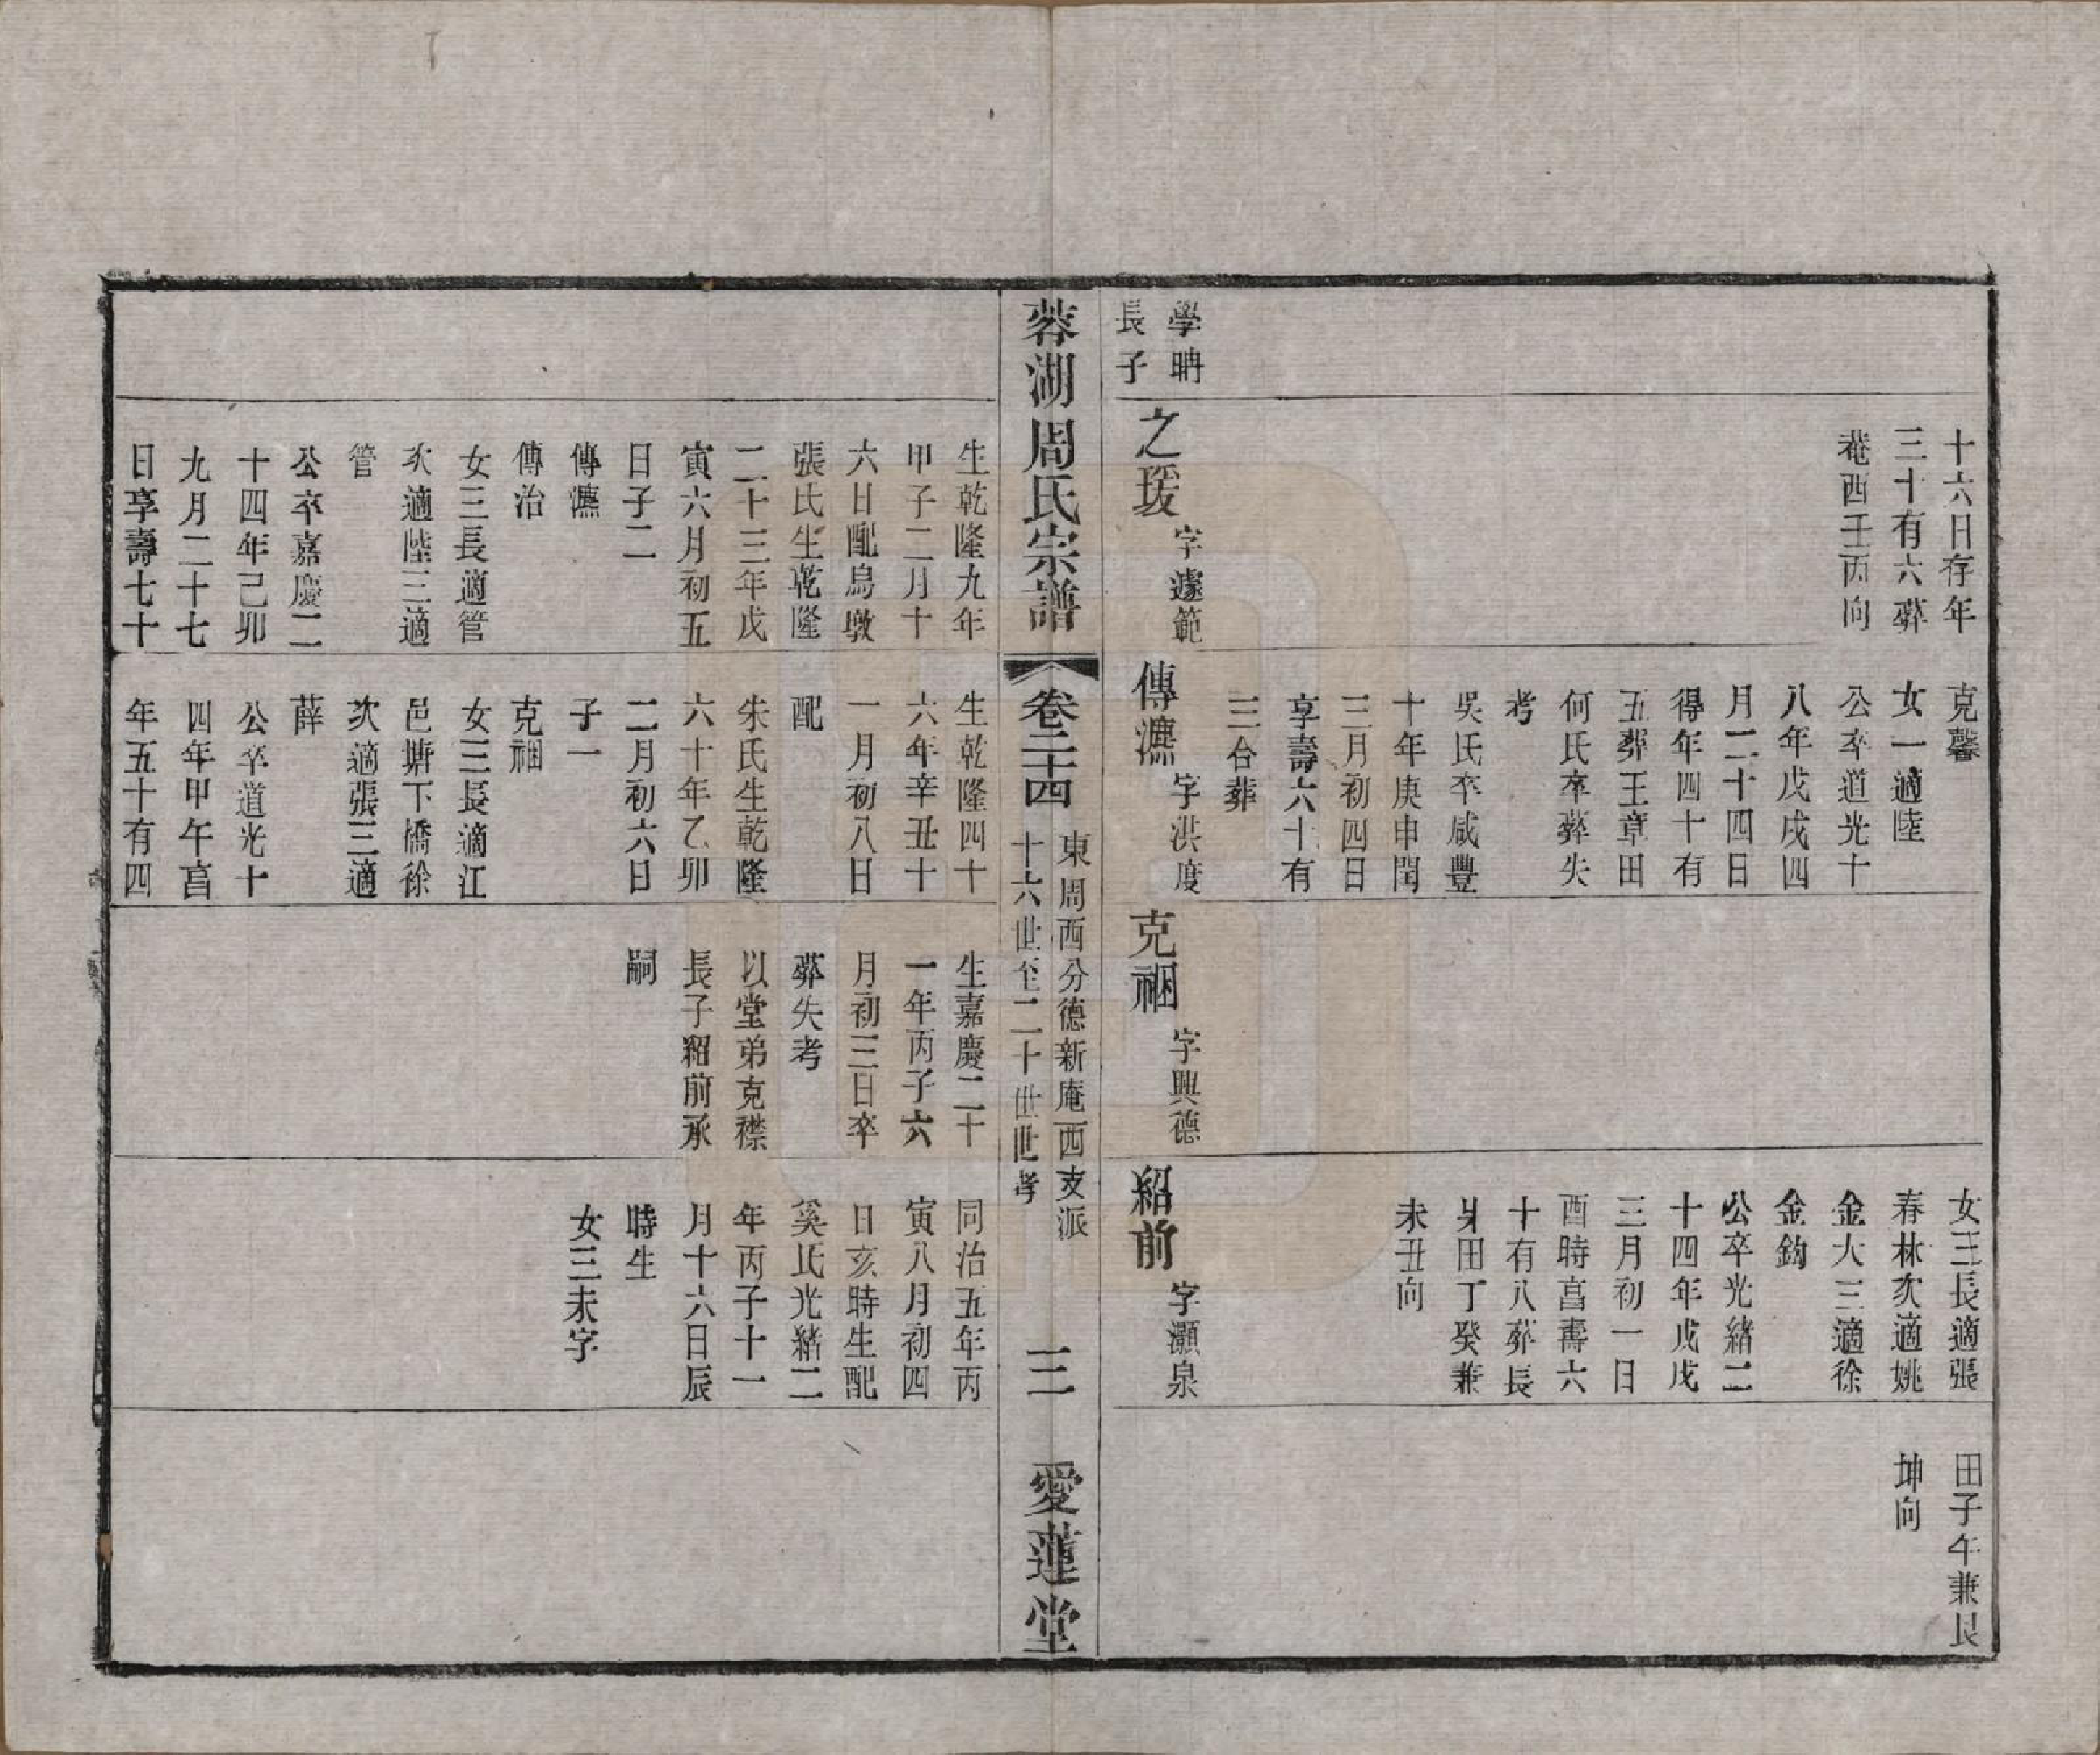 十六日存年
三十有六葬
菴西壬丙向
克馨
女一適陸
公卒道光十
八年戊戌四
月二十四日
得年四十有
五葬王章田
何氏卒葬失
考
吳氏卒咸豐
十年庚申閏
三月初四日
享壽六十有
三合葬
女三長適張
春林次適姚
金大三適徐
金鈎
公卒光緒二
十四年戊戌
三月初一日
酉時享壽六
十有八葬長
田丁癸兼
未丑向
田子午兼艮
坤向
學聃
長子
之瑗 字遽範
傳瀌 字洪度
克祵 字興德
紹前 字灝泉
蓉湖周氏宗譜
卷二十四
東周西分德新庵西支派
十六世至二十世世考
三
愛蓮堂
生乾隆九年
甲子二月十
六日配烏墩
張氏生乾隆
二十三年戊
寅六月初五
日子二
傳瀌
傳治
女三長適管
次適陸三適
管
公卒嘉慶二
十四年己卯
九月二十七
日享壽七十
生乾隆四十
六年辛丑十
一月初八日
配
朱氏生乾隆
六十年乙卯
二月初六日
子一
克祵
女三長適江
邑塘下橋徐
次適張三適
薛
公卒道光十
四年甲午享
年五十有四
生嘉慶二十
一年丙子六
月初三日卒
葬失考
以堂弟克襟
長子紹前承
嗣
同治五年丙
寅八月初四
日亥時生配
奚氏光緒二
年丙子十一
月十六日辰
時生
女三未字